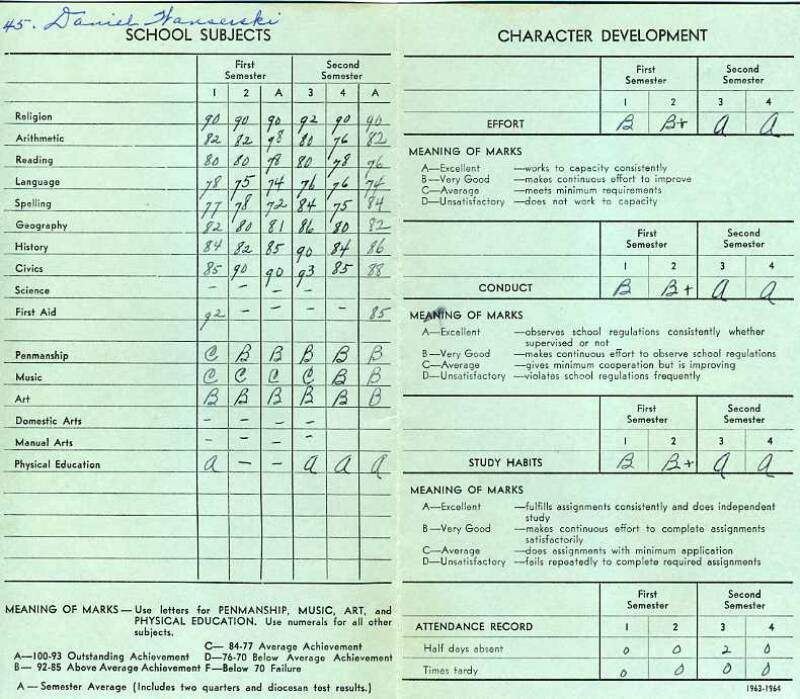 45. Daniel Wanserski
SCHOOL SUBJECTS
First Semester Second Semester
1 2 A 3 4 A
Religion 90 90 90 92 90 90
Arithmetic 82 82 98 80 76 82
Reading 80 80 78 80 78 76
Language 78 75 74 76 76 74
Spelling 77 78 72 84 75 84
Geography 82 80 81 86 80 82
History 84 82 85 90 84 86
Civics 85 90 90 93 85 88
Science – – – –
First Aid 92 – – – – 85
Penmanship C B B B B B
Music C C C C B B
Art B B B B B B
Domestic Arts – – – –
Manual Arts – – – –
Physical Education A – – A A A
MEANING OF MARKS — Use letters for PENMANSHIP, MUSIC, ART, and
PHYSICAL EDUCATION. Use numerals for all other
subjects.
C— 84-77 Average Achievement
A—100-93 Outstanding Achievement D—76-70 Below Average Achievement
B— 92-85 Above Average Achievement F—Below 70 Failure
A — Semester Average (Includes two quarters and diocesan test results.)
CHARACTER DEVELOPMENT
First Semester Second Semester
1 2 3 4
EFFORT B B+ A A
MEANING OF MARKS
A—Excellent —works to capacity consistently
B—Very Good —makes continuous effort to improve
C—Average —meets minimum requirements
D—Unsatisfactory —does not work to capacity
First Semester Second Semester
1 2 3 4
CONDUCT B B+ A A
MEANING OF MARKS
A—Excellent —observes school regulations consistently whether
supervised or not
B—Very Good —makes continuous effort to observe school regulations
C—Average —gives minimum cooperation but is improving
D—Unsatisfactory —violates school regulations frequently
First Semester Second Semester
1 2 3 4
STUDY HABITS B B+ A A
MEANING OF MARKS
A—Excellent —fulfills assignments consistently and does independent
study
B—Very Good —makes continuous effort to complete assignments
satisfactorily
C—Average —does assignments with minimum application
D—Unsatisfactory —fails repeatedly to complete required assignments
First Semester Second Semester
ATTENDANCE RECORD 1 2 3 4
Half days absent 0 0 2 0
Times tardy 0 0 0 0
1963-1964